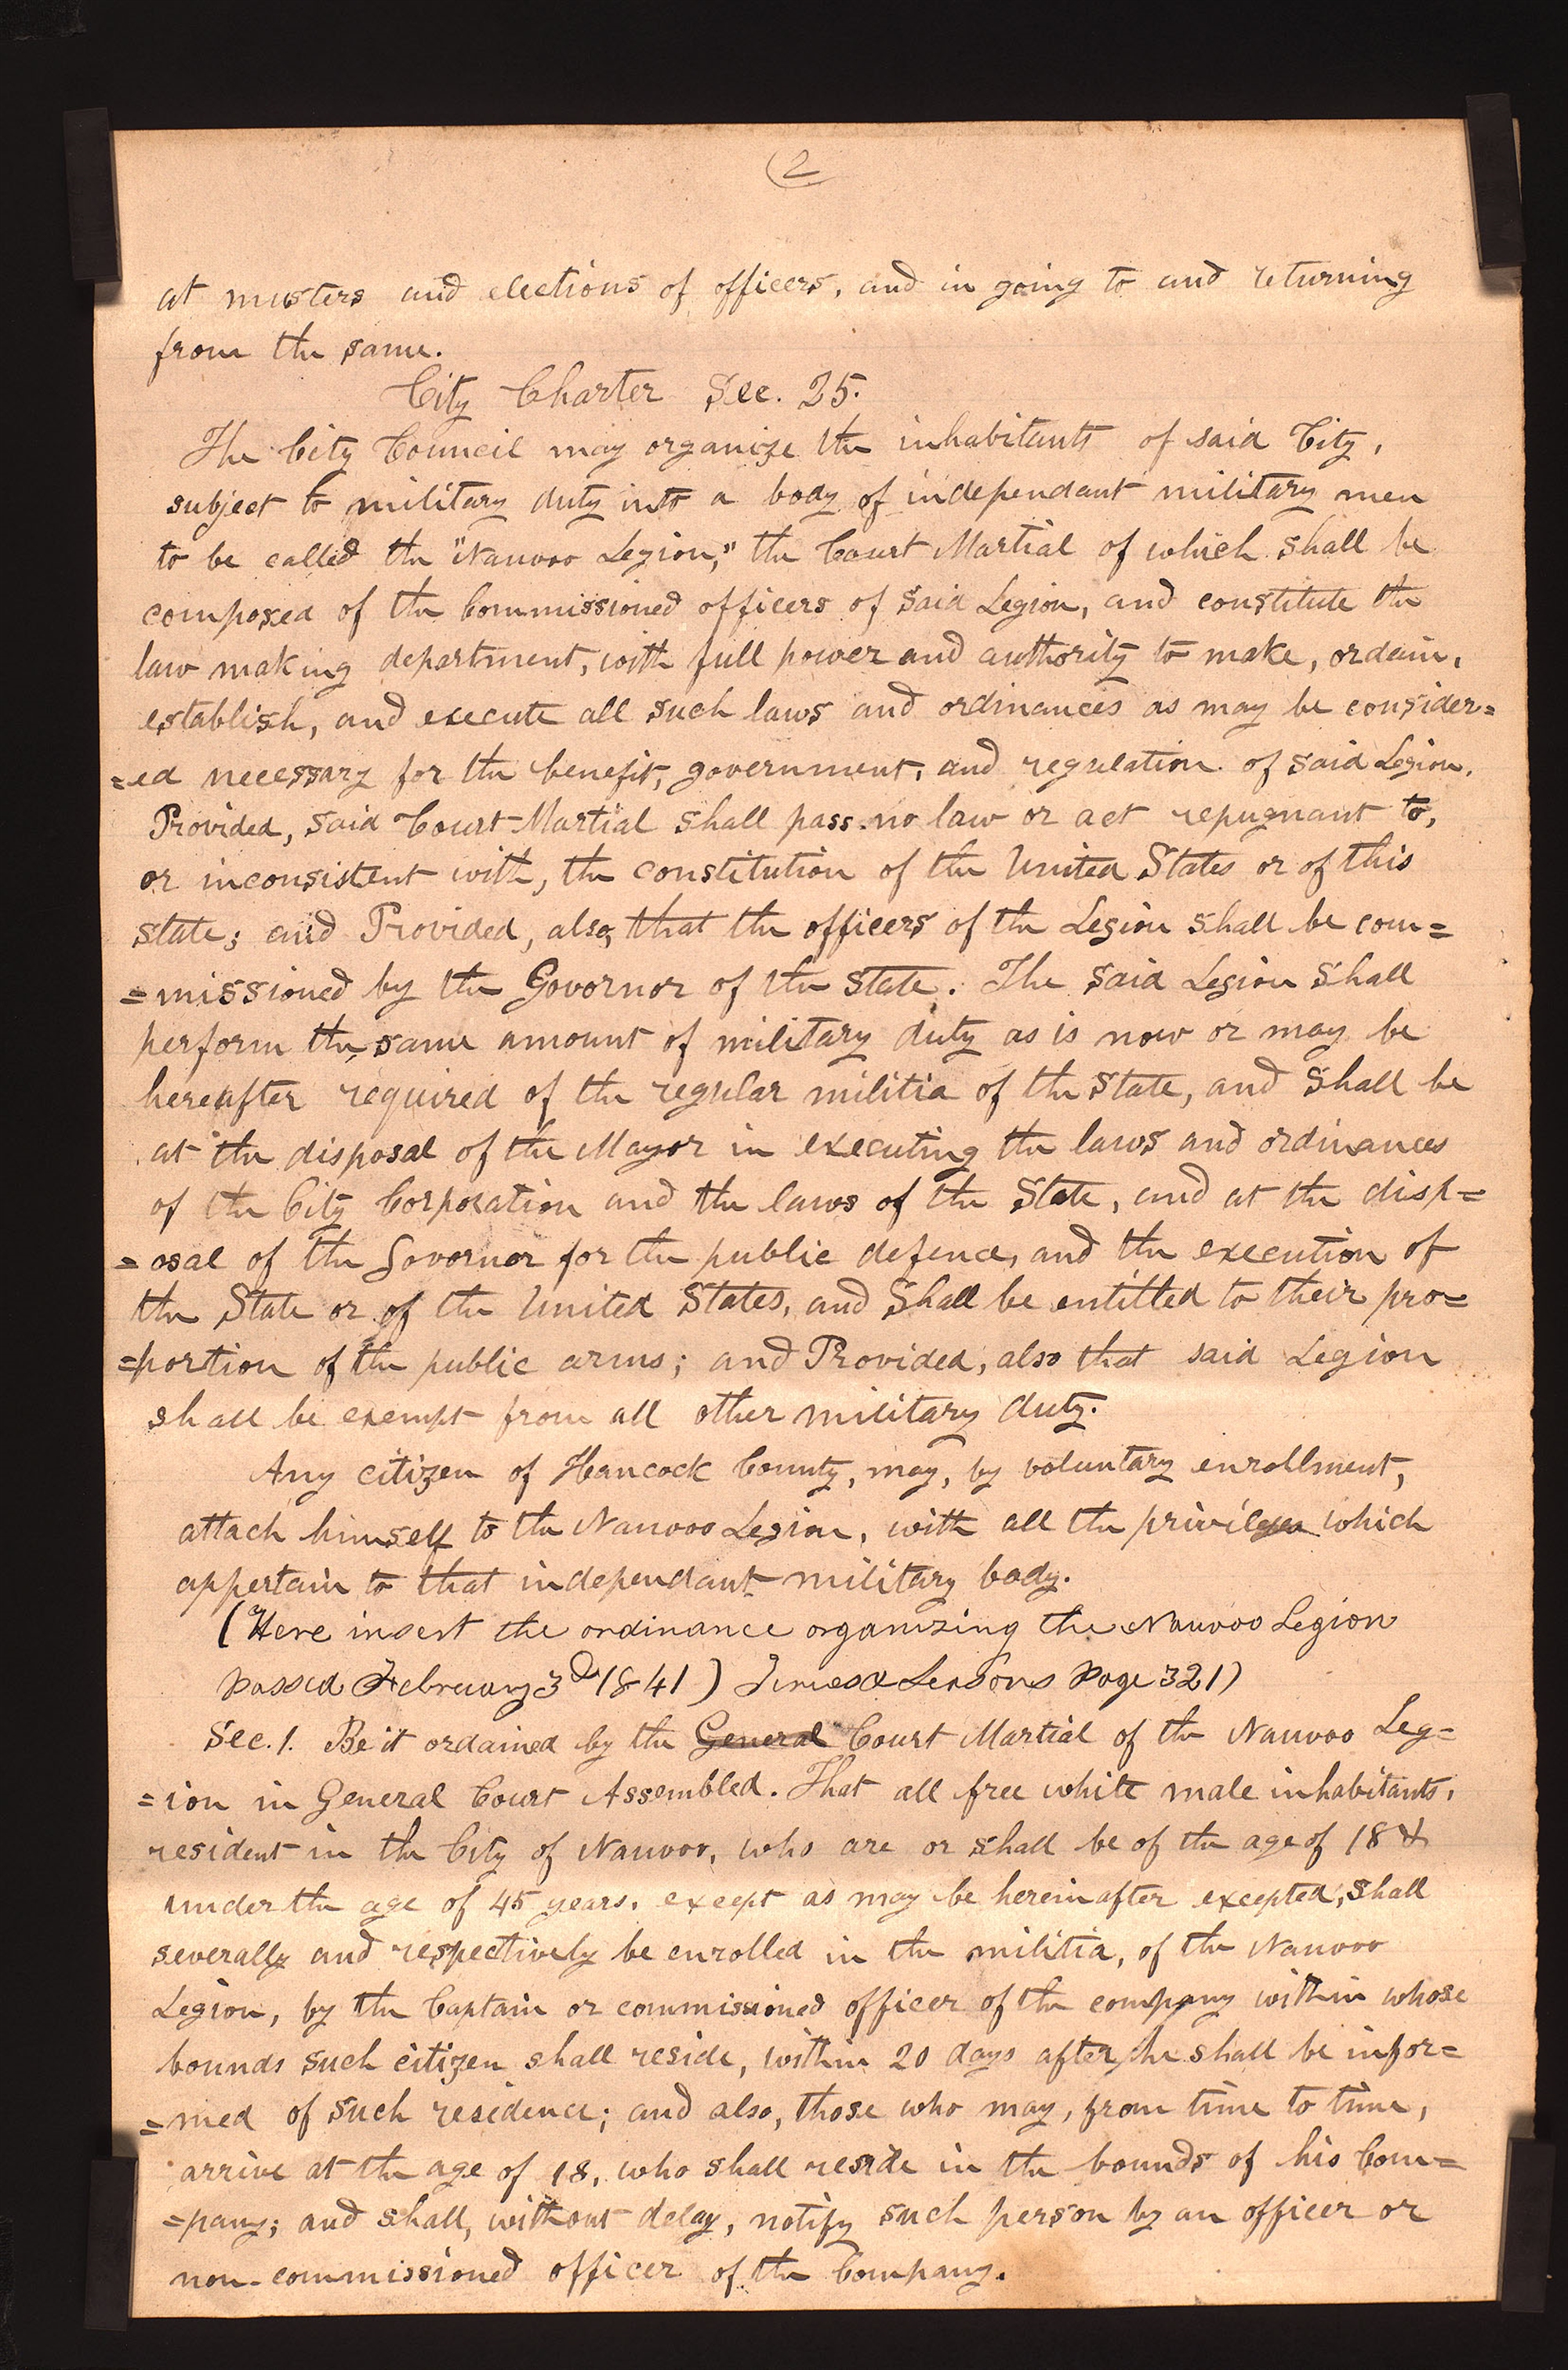 (2
at musters and elections of officers, and in going to and returning
from the same.
City Charter Sec. 25.
The City Council may organize the inhabitants of said City,
subject to military duty into a body of independant military men
to be called the "Nauvoo Legion," the Court Martial of which shall be
composed of the Commissioned officers of said Legion, and constitute the
law making department, with full power and authority to make, ordain,
establish, and execute all such laws and ordinances as may be consider=
=ed necessary for the benefit, government, and regulation of said Legion.
Provided, said Court-Martial shall pass no law or act repugnant to,
or inconsistent with, the constitution of the United States or of this
state; and Provided, also, that the officers of the Legion shall be com=
=missioned by the Govornor of the State. The said Legion shall
perform the same amount of military duty as is now or may be
hereafter required of the regular militia of the State, and shall be
at the disposal of the Mayor in executing the laws and ordinances
of the City Corporation and the laws of the State, and at the disp=
=osal of the Govornor for the public defence, and the execution of
the State or of the United States, and shall be entitled to their pro=
=portion of the public arms; and Provided, also that said Legion
shall be exempt from all other military duty.
Any citizen of Hancock County, may, by voluntary enrollment,
attach himself to the Nauvoo Legion, with all the privileges which
appertain to that independant military body.
(Here insert the ordinance organizing the Nauvoo Legion
passed February 3d 1841) Times & Seasons page 321)
Sec. 1. Be it ordained by the General Court Martial of the Nauvoo Leg=
=ion in General Court Assembled. That all free white male inhabitants,
resident in the City of Nauvoo, who are or shall be of the age of 18 &
under the age of 45 years, except as may be herein after excepted, shall
severally and respectively be enrolled in the militia, of the Nauvoo
Legion, by the Captain or commissioned officer of the company within whose
bounds such citizen shall reside, within 20 days after he shall be infor=
=med of such residence; and also, those who may, from time to time,
arrive at the age of 18, who shall reside in the bounds of his Com=
=pany; and shall, without delay, notify such person by an officer or
non-commissioned officer of the Company.